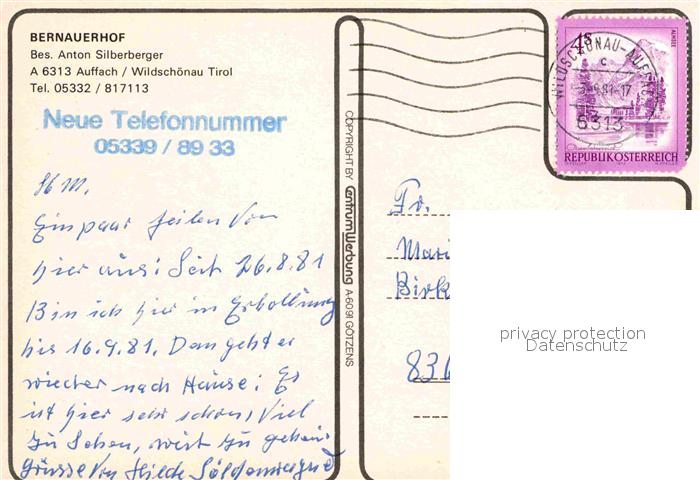 BERNAUERHOF
Bes. Anton Silberberger
A 6313 Auffach / Wildschönau Tirol
Tel. 05332 / 817113
Neue Telefonnummer
05339 / 89 33
Ein paar Zeilen von
hier aus: Seit 26.8.81
Bin ich hier in Erhollung
bis 16.9.81. Dan geht er
wiecher nach Hause: Es
ist hier sehr schön, Viel
zu Sehen, zu gehen
Grüsse Von Hilde
COPYRIGHT BY CentrumWerbung A-6091 GÖTZENS
4S
ALMSEE
WILDSCHÖNAU-AUFFACH
c
9.81-17
6313
REPUBLIK ÖSTERREICH
Fr.
Mari
Birk
836
privacy protection
Datenschutz